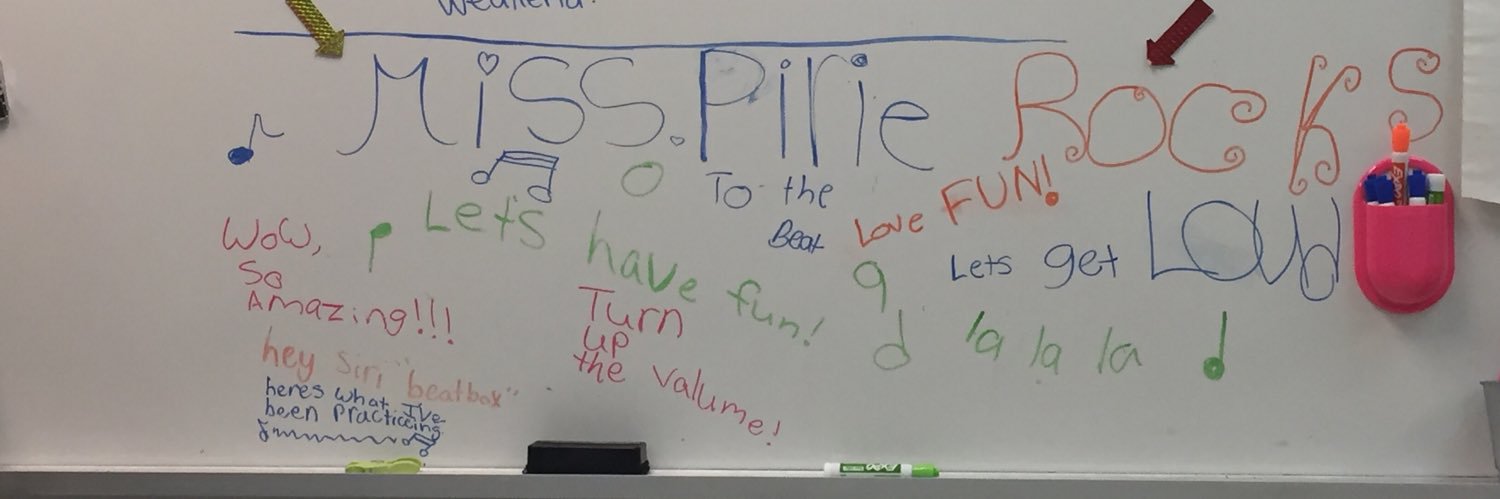 Miss. Pirie ROCKS
To the
Beat
Love FUN!
Let's have fun!
Lets get LOUD
Wow,
So
Amazing!!!
Turn
up
the valume!
la la la
hey Siri "beatbox"
heres what I've
been Practiceing
EXPO